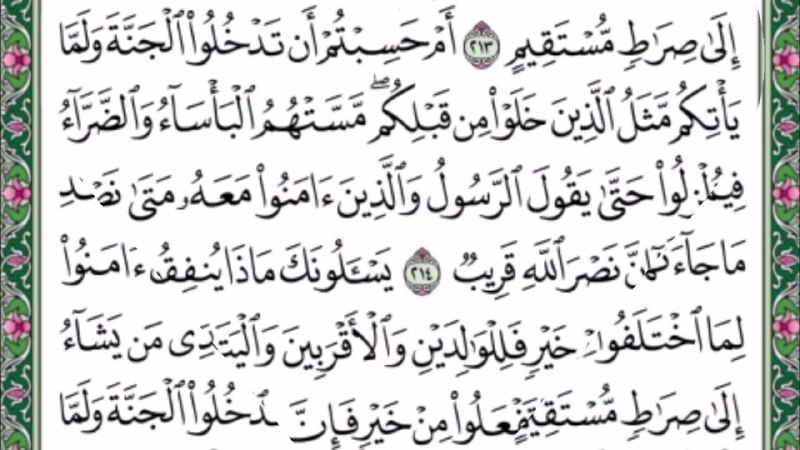 إِلَىٰ صِرَٰطٍ مُّسْتَقِيمٍ ٢١٣ أَمْ حَسِبْتُمْ أَن تَدْخُلُوا۟ ٱلْجَنَّةَ وَلَمَّا
يَأْتِكُم مَّثَلُ ٱلَّذِينَ خَلَوْا۟ مِن قَبْلِكُم ۖ مَّسَّتْهُمُ ٱلْبَأْسَآءُ وَٱلضَّرَّآءُ
حَتَّىٰ يَقُولَ ٱلرَّسُولُ وَٱلَّذِينَ ءَامَنُوا۟ مَعَهُۥ مَتَىٰ
مَا جَآءَ نَصْرَ ٱللَّهِ قَرِيبٌ ٢١٤ يَسْـَٔلُونَكَ مَاذَا ءَامَنُوا۟
لِمَا ٱخْتَلَفُوا۟ خَيْرٍ فَلِلْوَٰلِدَيْنِ وَٱلْأَقْرَبِينَ مَن يَشَآءُ
إِلَىٰ صِرَٰطٍ مِنْ خَيْرٍ فَإِنَّ ٱلْجَنَّةَ وَلَمَّا